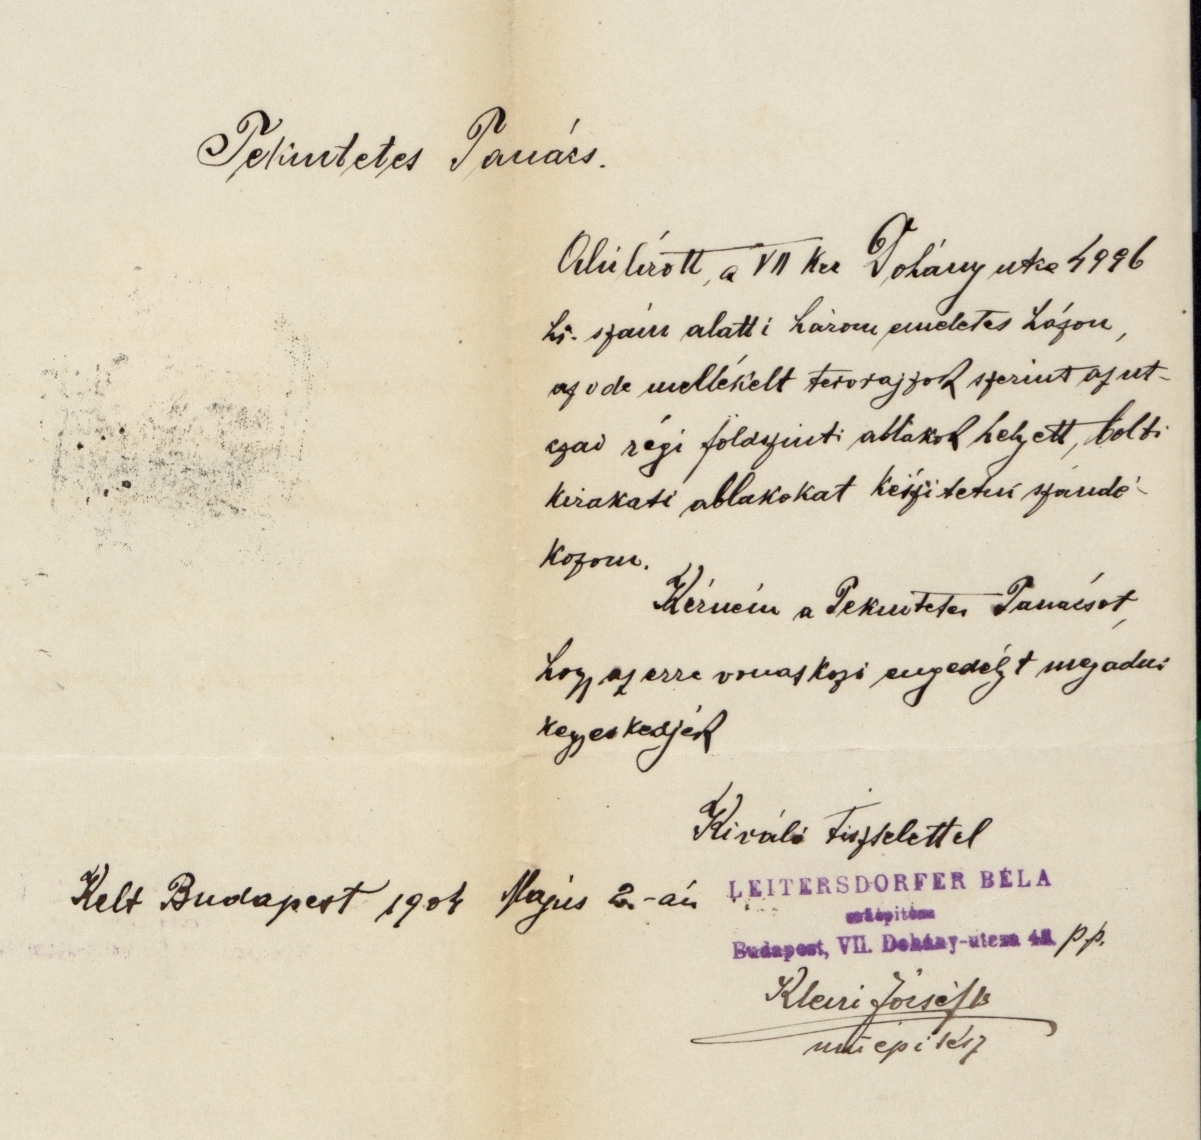 Tekintetes Tanács.
Alúlirott, a VII ker Dohány utca 4996
hr. szám alatti három emeletes házon,
az ide mellékelt tervrajzok szerint az ut-
czai régi földszinti ablakok helyett, bolti
kirakati ablakokat készitetni szándé-
kozom.
Kérném a Tekintetes Tanácsot,
hogy az erre vonatkozó engedélyt megadni
kegyeskedjék
Kiváló tisztelettel
Kelt Budapest 1904 Május 2-án
LEITERSDORFER BÉLA
Budapest, VII. Dohány-utcza p.p.
József
műépitész